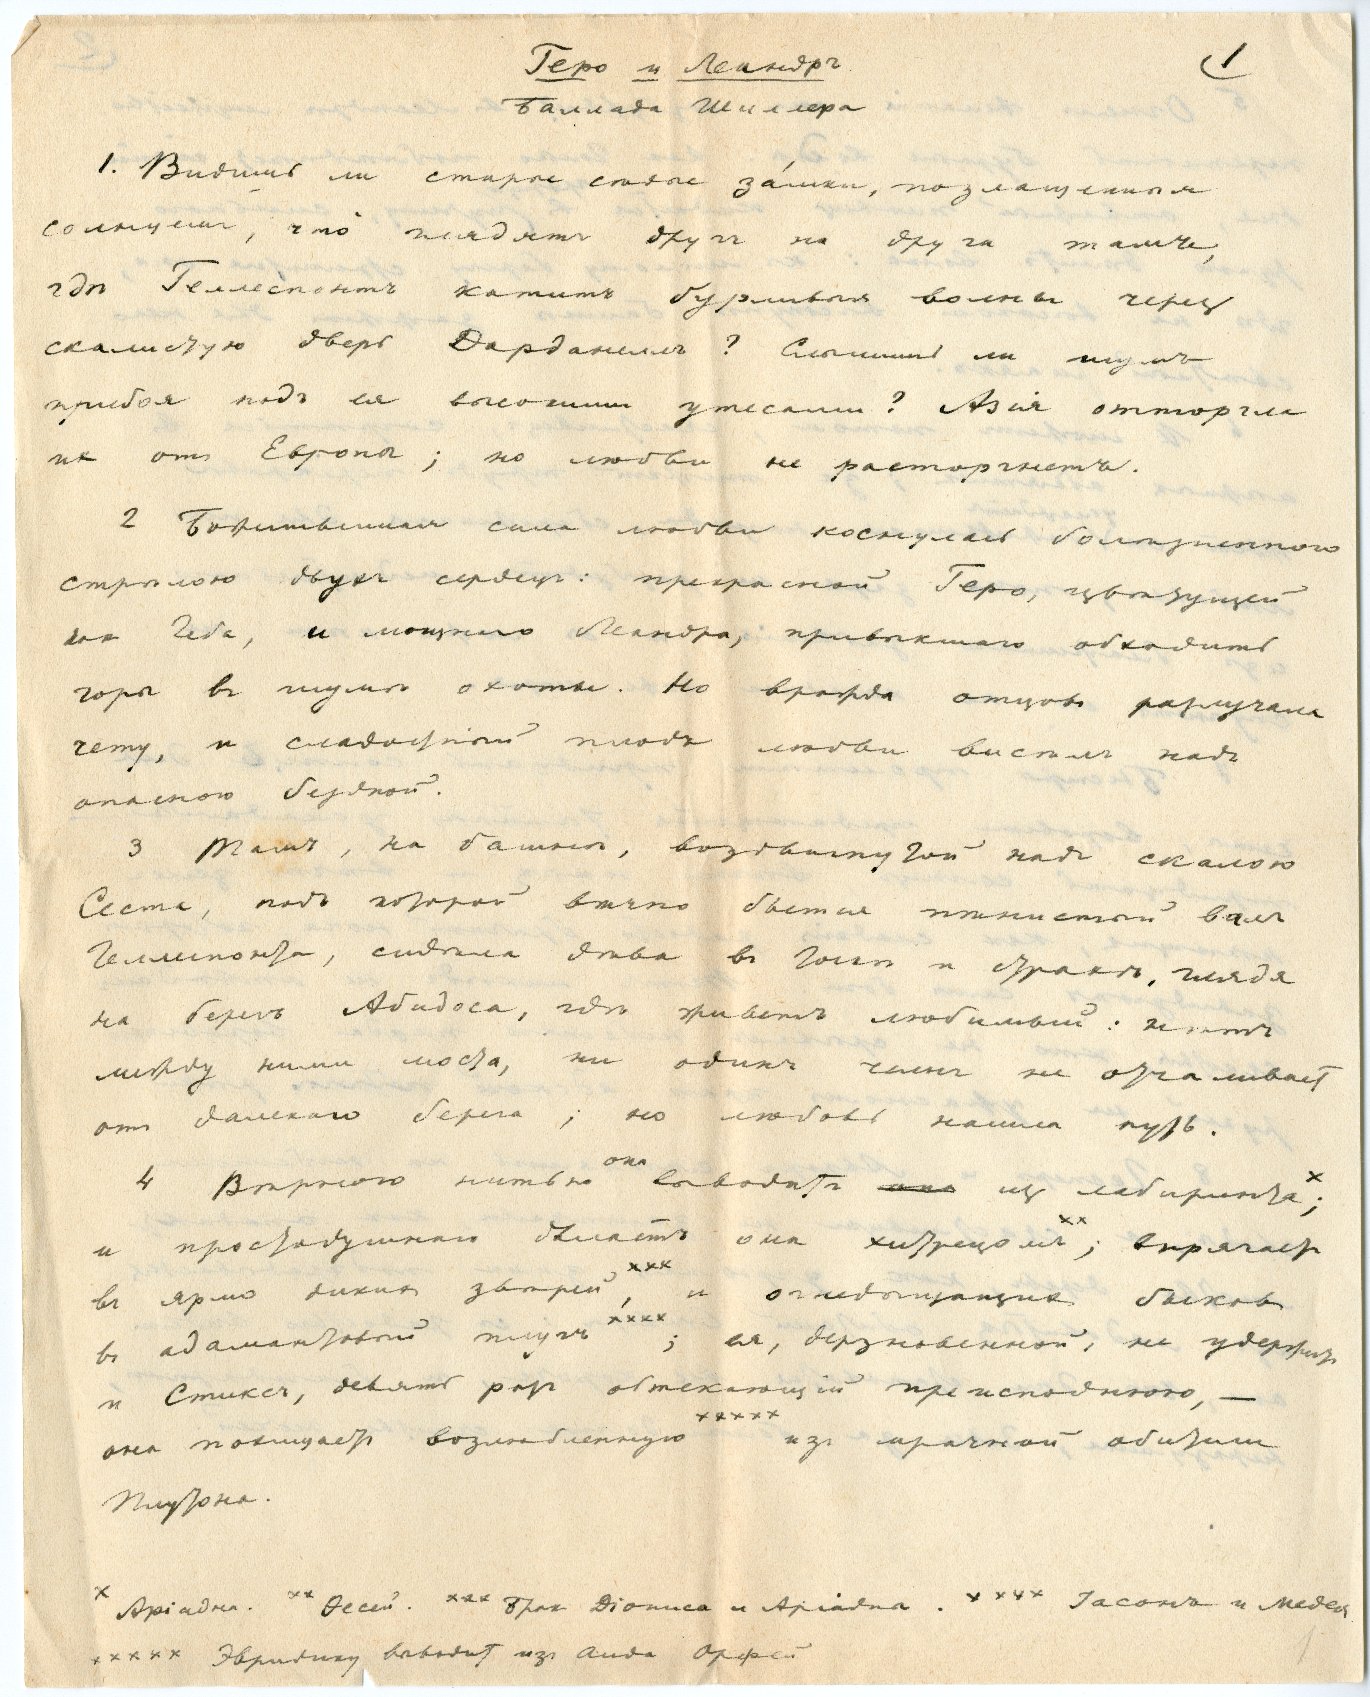 1
Геро и Леандръ
Баллада Шиллера
1. Видишь ли старые седые за́мки, позлащенныя
солнцемъ, что глядятъ другъ на друга тамъ,
гдѣ Геллеспонтъ катитъ бурливыя волны черезъ
скалистую дверь Дарданеллъ? Слышишь ли шумъ
прибоя подъ ея высокими утесами? Азія отторгла
их отъ Европы; но любви не расторгнетъ.
2 Божественная сила любви коснулась болѣзненною
стрѣлою двухъ сердецъ: прекрасной Геро, цвѣтущей
как Геба, и мощнаго Леандра, привыкшаго обходить
горы въ шумѣ охоты. Но вражда отцовъ разлучала
чету, и сладостный плодъ любви виселъ надъ
опасною бездной.
3 Тамъ, на башнѣ, воздвигнутой надъ скалою
Сеста, подъ которой вѣчно бьется пѣнистый валъ
Геллеспонта, сидѣла дѣва въ тоскѣ и страхѣ, глядя
на берегъ Абидоса, гдѣ живетъ любимый: нѣтъ
между ними моста, ни одинъ челнъ не отчаливает
отъ далекаго берега; но любовь нашла путь.
4 Вѣрною нитью она выводитъ из лабиринта ×;
и простодушнаго дѣлаетъ она хитрецомъ ××; впрягает
въ ярмо диких звѣрей ×××, и огнедышащих быков
въ адамантовый плугъ ××××; ея, дерзновенной, не удержит
и Стиксъ, девять раз обтекающій преисподнюю, —
она похищает возлюбленную ××××× изъ мрачной обители
Плутона.
× Аріадна. ×× Ѳесей. ××× Брак Діониса и Аріадна. ×××× Іасонъ и Медея
××××× Эвридику выводит изъ Аида Орфей